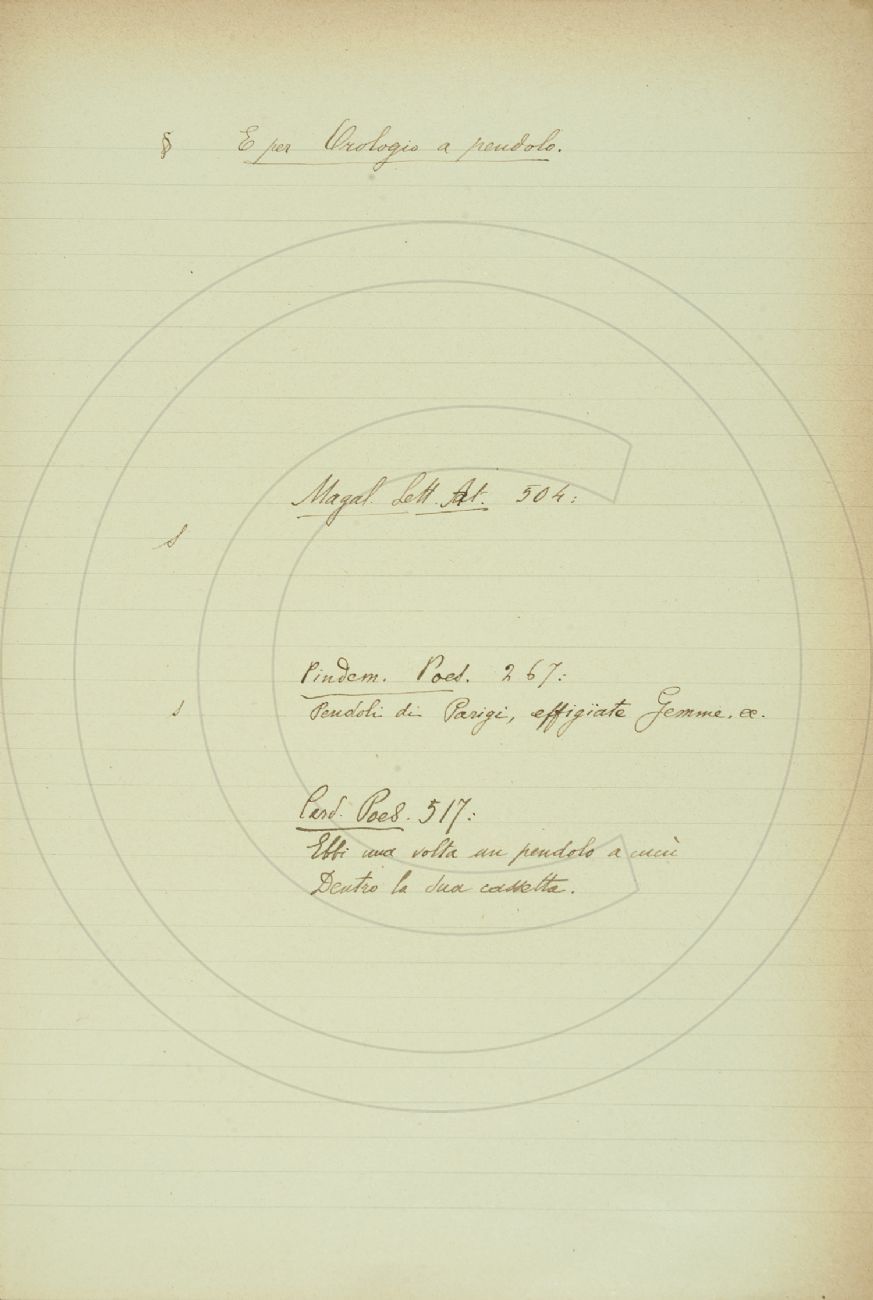 § E per Orologio a pendolo.
Magal. Lett. At. 504:
s
Pindem. Poes. 267:
s Pendoli di Parigi, effigïate Gemme. ec.
Card. Poes. 517:
Ebbi una volta un pendolo a cucù
Dentro la sua cassetta.